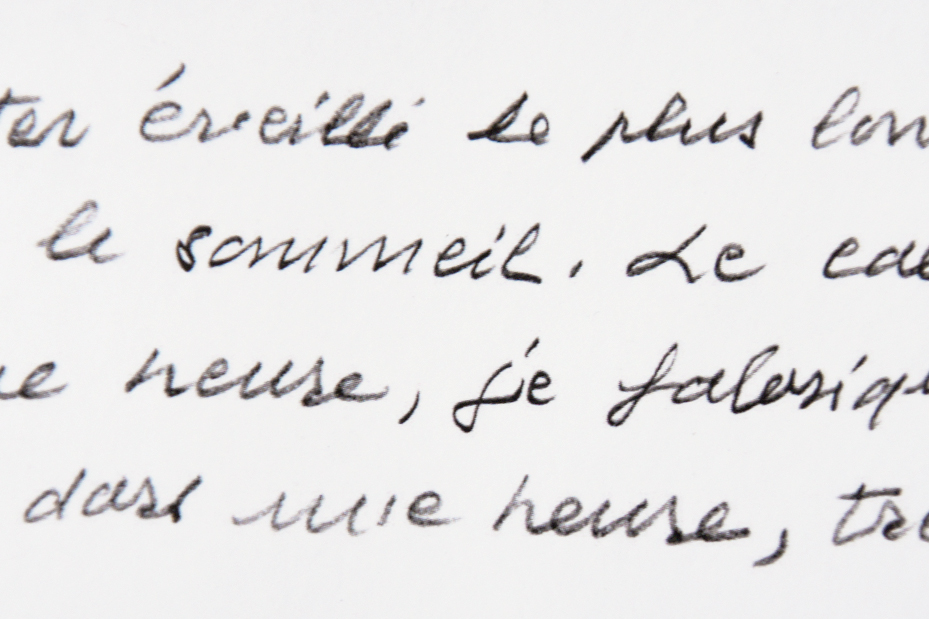 ter éveillé le plus lon
le sommeil. Le
ne heure, je fabriqu
dans une heure, tre